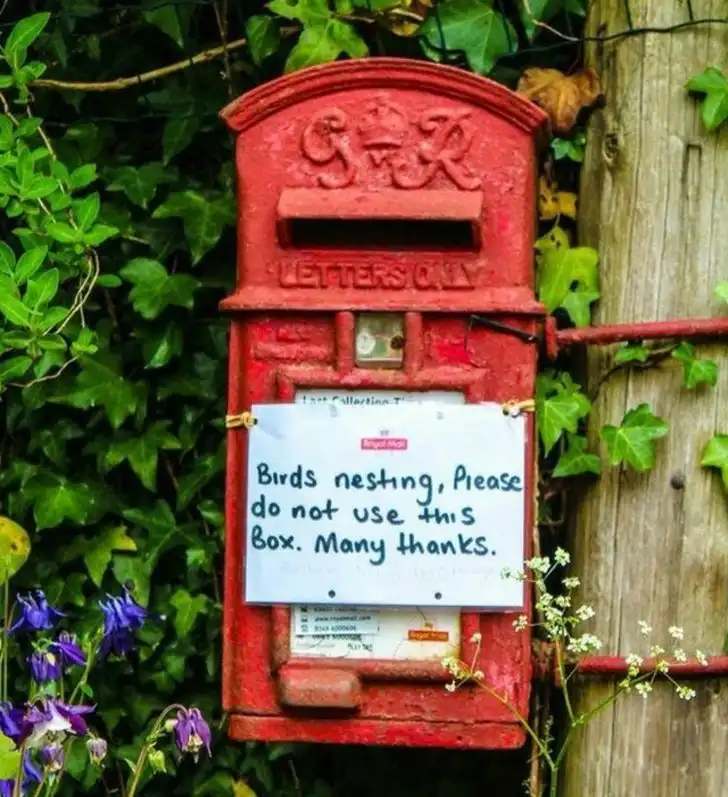 G R
LETTERS ONLY
Last Collection
Royal Mail
Birds nesting, Please
do not use this
Box. Many thanks.
Royal Mail